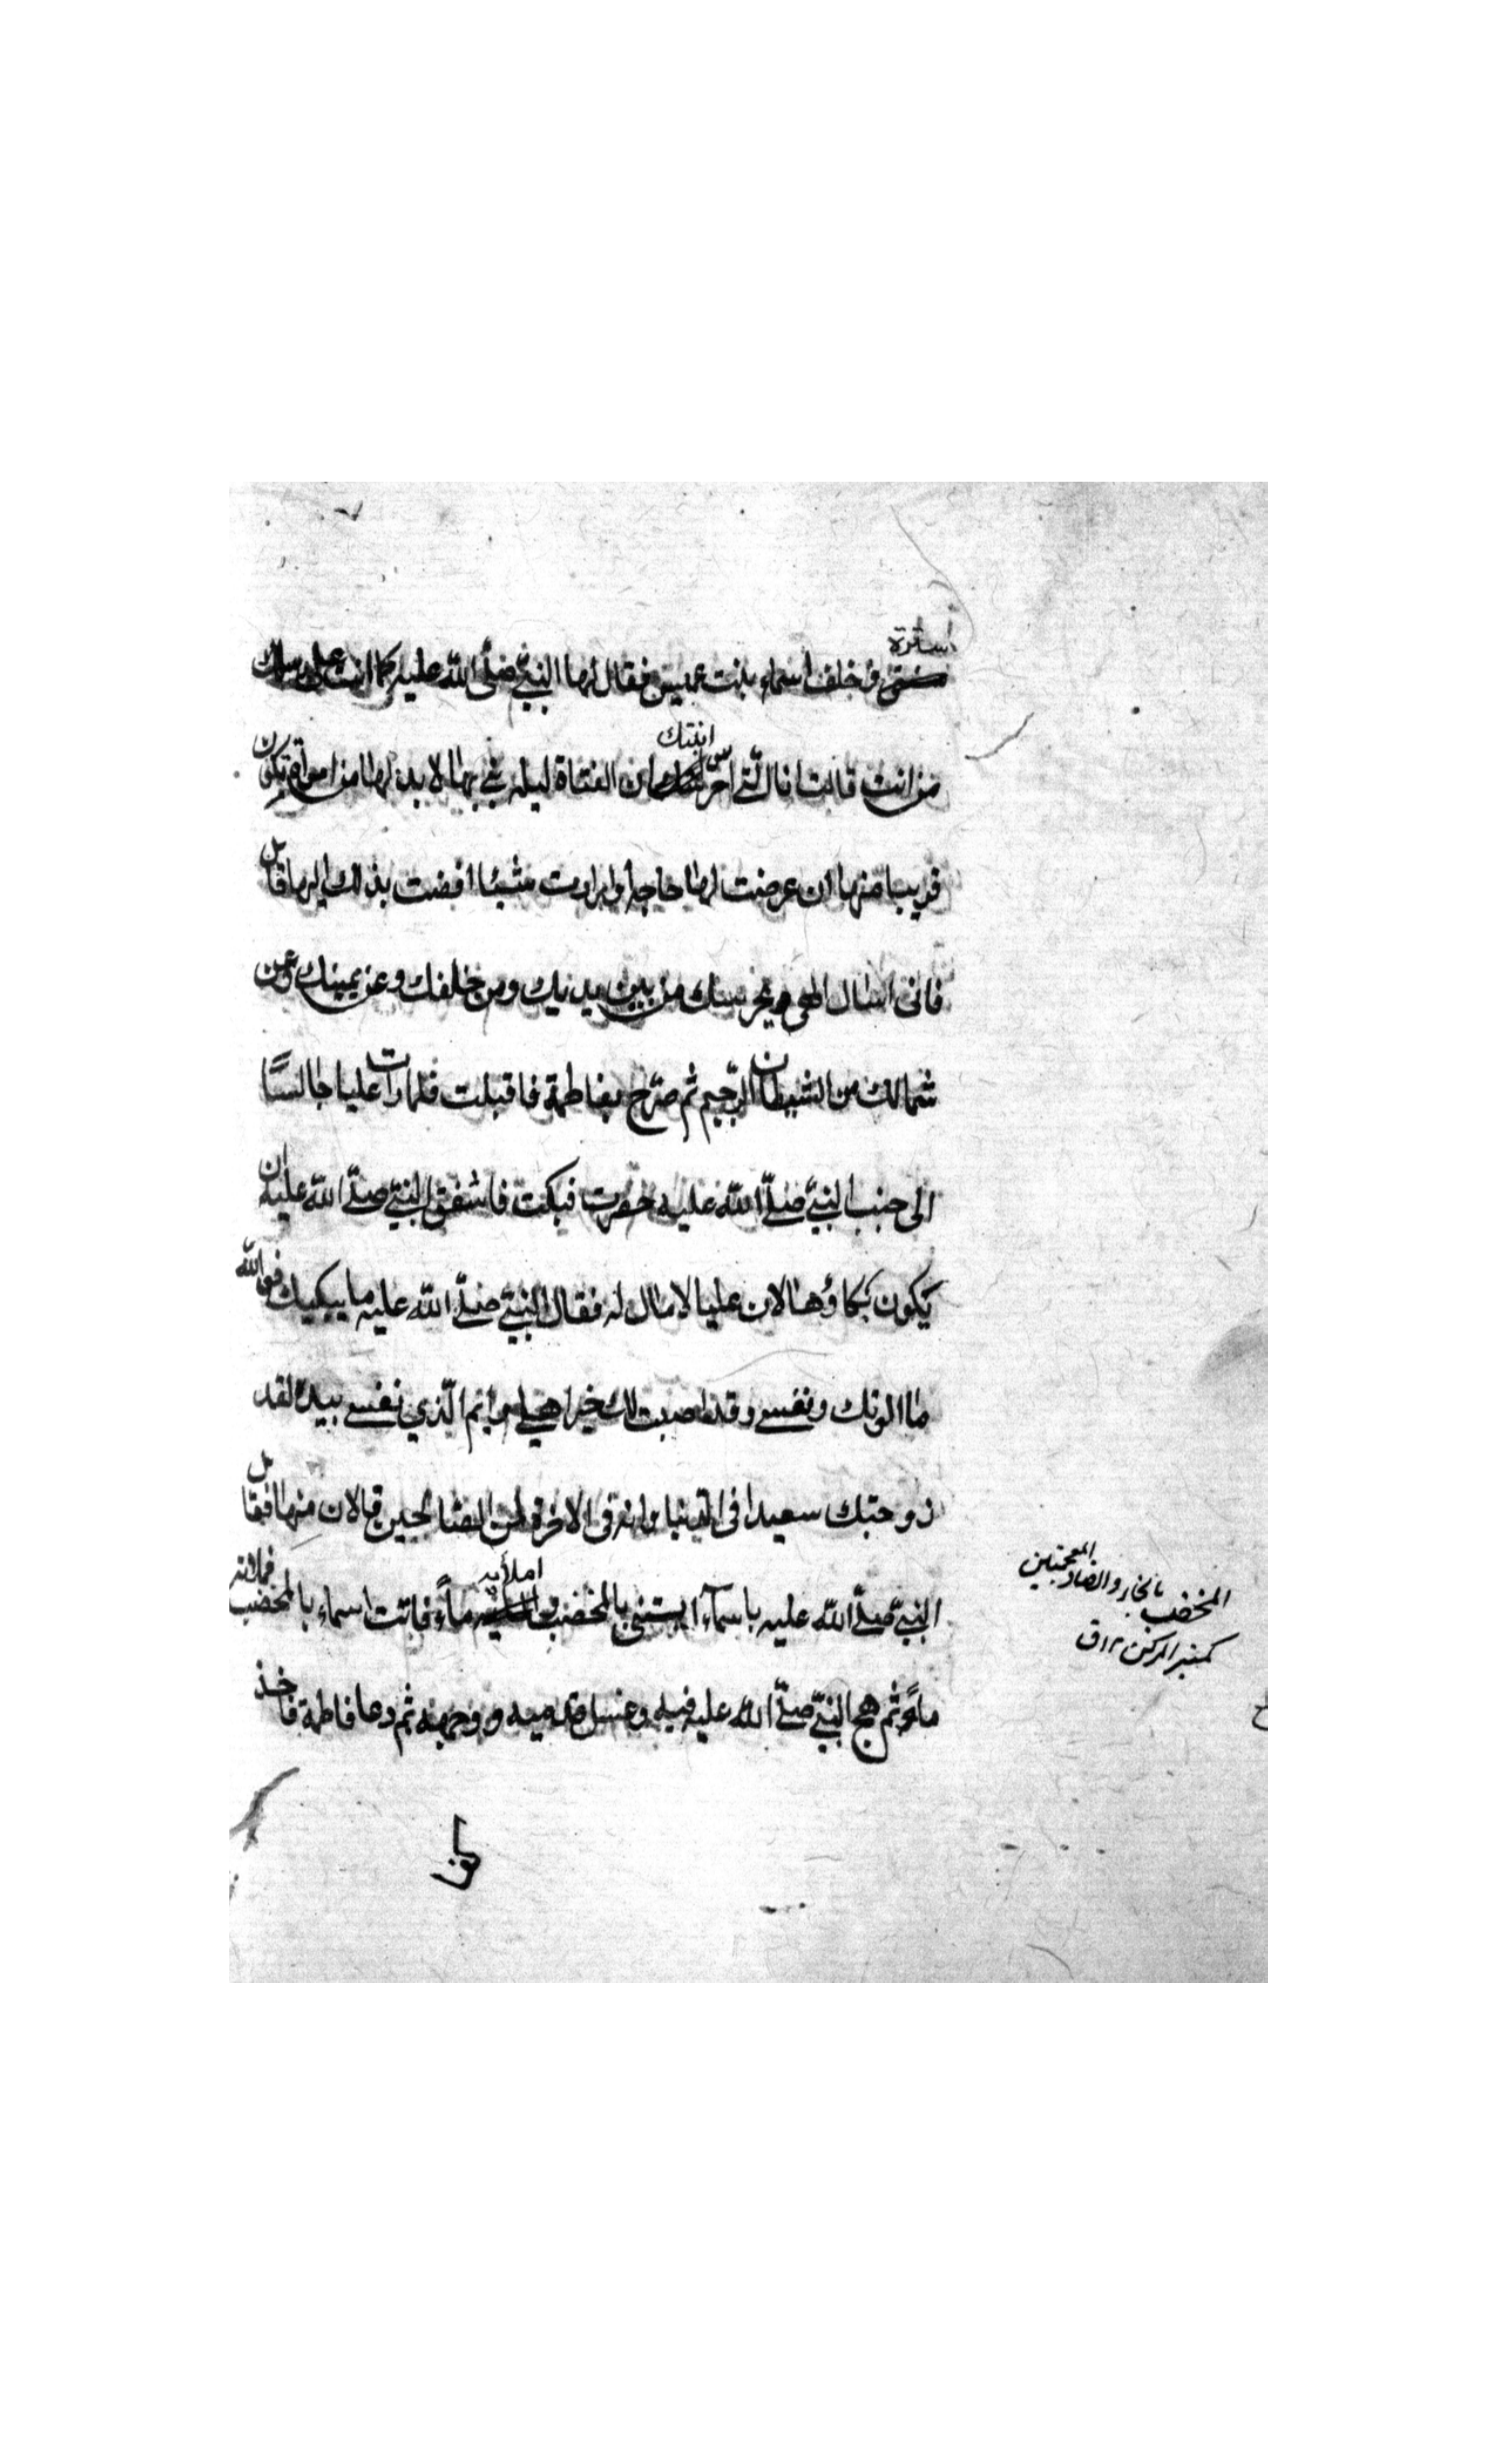 استرة
وخلف اسماء بنت عميس فقال لها النبيّ صلّى الله عليه كما انت على رسلك
من انت قالت انا الّتي احرس ابنتك ان الفتاة ليلة يبنى بها لا بد لها من امرأة تكون
قريبا منها ان عرضت لها حاجة او ارادت شيئا افضت بذلك اليها قال
فانى اسال الهى يحرسك من بين يديك ومن خلفك وعن يمينك وعن
شمالك من الشيطان الرّجيم ثم صرّخ بفاطمة فاقبلت فلما رات عليا جالسًا
الى جنب النبيّ صلّى الله عليه حصرت فبكت فاشفق النبيّ صلّى الله عليه ان
يكون بكاؤها لان عليا لا مال له فقال النبيّ صلّى الله عليه ما يبكيك فوالله
ما الوتك ونفسي وقد اصبت لك خير اهلي وايم الّذي نفسي بيده لقد
زوجتك سعيدا فى الدّنيا وانه فى الاخرة لمن الصّالحين قال لان منها فقال
النبيّ صلّى الله عليه يا اسمآء ايتنى بالمخضب املأيه ماءً فاتت اسماء بالمخضب فملأته
ماءً ثم مج النبيّ صلّى الله عليه فيه وغسل قدميه ووجهه ثم دعا فاطمة فاخذ
المخضب بالخاء والضاد المعجمتين
كمنبر المركن ١٢ ق